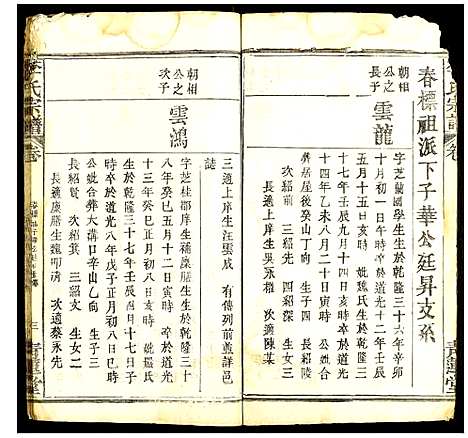 李氏宗譜 卷
春標祖派下子華公廷昇支系
朝相公之長子
雲龍
字芝蘭國學生生於乾隆三十六年辛卯
十月初一日午時卒於道光十二年壬辰
五月十一日亥時 姚魏氏生於乾隆三十
七年壬辰九月十四日亥時卒於道光
十四年乙未八月二十日寅時 公妣合
葬居屋後癸山丁向 生子四 長紹陵
次紹前 三紹先 四紹深 生女三
長適上庠生吳永榴 次適陳某
三適上庠生汪雲成 有傳列前並詳邑
誌
朝相公之次子
雲鴻
字芝桂郡庠生補廩膳生生於乾隆三十
八年癸巳五月十二日寅時 卒於道光
十三年癸巳正月初八日亥時 妣羅氏
生於乾隆三十七年壬辰日月十七日子
時卒於道光八年戊子正月初八日巳時
公妣合葬大溝口辛山乙向 生子三
長紹賢 次紹箕 三紹文 生女二
長適慶膳生魏明清 次適蔡永先
李氏宗譜 卷
三 青蓮堂